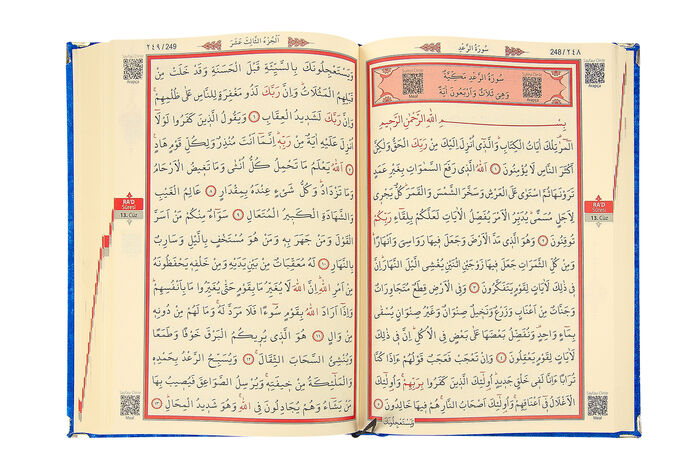 ٢٤٨ / 248
سُورَةُ الرَّعْدِ
Sayfayı Dinle
Meal
Sayfayı Dinle
Arapça
سُورَةُ الرَّعْدِ مَكِّيَّةٌ
وَهِيَ ثَلَاثٌ وَاَرْبَعُونَ اٰيَةً
بِسْمِ اللّٰهِ الرَّحْمٰنِ الرَّحِيمِ
الٓمٓرٰ تِلْكَ اٰيَاتُ الْكِتَابِ وَالَّذِٓي اُنْزِلَ اِلَيْكَ مِنْ رَبِّكَ الْحَقُّ وَلٰكِنَّ
اَكْثَرَ النَّاسِ لَا يُؤْمِنُونَ ١ اَللّٰهُ الَّذِي رَفَعَ السَّمٰوَاتِ بِغَيْرِ عَمَدٍ
تَرَوْنَهَا ثُمَّ اسْتَوٰى عَلَى الْعَرْشِ وَسَخَّرَ الشَّمْسَ وَالْقَمَرَ كُلٌّ يَجْرِي
لِاَجَلٍ مُسَمًّى يُدَبِّرُ الْاَمْرَ يُفَصِّلُ الْاٰيَاتِ لَعَلَّكُمْ بِلِقَٓاءِ رَبِّكُمْ
تُوقِنُونَ ٢ وَهُوَ الَّذِي مَدَّ الْاَرْضَ وَجَعَلَ فِيهَا رَوَاسِيَ وَاَنْهَارًا
وَمِنْ كُلِّ الثَّمَرَاتِ جَعَلَ فِيهَا زَوْجَيْنِ اثْنَيْنِ يُغْشِي الَّيْلَ النَّهَارَ اِنَّ
فِي ذٰلِكَ لَاٰيَاتٍ لِقَوْمٍ يَتَفَكَّرُونَ ٣ وَفِي الْاَرْضِ قِطَعٌ مُتَجَاوِرَاتٌ
وَجَنَّاتٌ مِنْ اَعْنَابٍ وَزَرْعٌ وَنَخِيلٌ صِنْوَانٌ وَغَيْرُ صِنْوَانٍ يُسْقٰى
بِمَٓاءٍ وَاحِدٍ وَنُفَضِّلُ بَعْضَهَا عَلٰى بَعْضٍ فِي الْاُكُلِ اِنَّ فِي ذٰلِكَ
لَاٰيَاتٍ لِقَوْمٍ يَعْقِلُونَ ٤ وَاِنْ تَعْجَبْ فَعَجَبٌ قَوْلُهُمْ ءَاِذَا كُنَّا
تُرَابًا ءَاِنَّا لَفِي خَلْقٍ جَدِيدٍ اُولٰٓئِكَ الَّذِينَ كَفَرُوا بِرَبِّهِمْ وَاُولٰٓئِكَ
الْاَغْلَالُ فِٓي اَعْنَاقِهِمْ وَاُولٰٓئِكَ اَصْحَابُ النَّارِ هُمْ فِيهَا خَالِدُونَ ٥
وَيَسْتَعْجِلُونَكَ
Sayfayı Dinle
Arapça
RA'D
Sûresi
13. Cüz
Sayfayı Dinle
Meal
اَلْجُزْءُ الثَّالِثَ عَشَرَ
٢٤٩ / 249
وَيَسْتَعْجِلُونَكَ بِالسَّيِّئَةِ قَبْلَ الْحَسَنَةِ وَقَدْ خَلَتْ مِنْ
قَبْلِهِمُ الْمَثُلَاتُ وَاِنَّ رَبَّكَ لَذُو مَغْفِرَةٍ لِلنَّاسِ عَلٰى ظُلْمِهِمْ
وَاِنَّ رَبَّكَ لَشَدِيدُ الْعِقَابِ ٦ وَيَقُولُ الَّذِينَ كَفَرُوا لَوْلَٓا
اُنْزِلَ عَلَيْهِ اٰيَةٌ مِنْ رَبِّهِ اِنَّمَٓا اَنْتَ مُنْذِرٌ وَلِكُلِّ قَوْمٍ هَادٍ
٧ اَللّٰهُ يَعْلَمُ مَا تَحْمِلُ كُلُّ اُنْثٰى وَمَا تَغِيضُ الْاَرْحَامُ
وَمَا تَزْدَادُ وَكُلُّ شَيْءٍ عِنْدَهُ بِمِقْدَارٍ ٨ عَالِمُ الْغَيْبِ
وَالشَّهَادَةِ الْكَبِيرُ الْمُتَعَالِ ٩ سَوَٓاءٌ مِنْكُمْ مَنْ اَسَرَّ
الْقَوْلَ وَمَنْ جَهَرَ بِهِ وَمَنْ هُوَ مُسْتَخْفٍ بِالَّيْلِ وَسَارِبٌ
بِالنَّهَارِ ١٠ لَهُ مُعَقِّبَاتٌ مِنْ بَيْنِ يَدَيْهِ وَمِنْ خَلْفِهِ يَحْفَظُونَهُ
مِنْ اَمْرِ اللّٰهِ اِنَّ اللّٰهَ لَا يُغَيِّرُ مَا بِقَوْمٍ حَتّٰى يُغَيِّرُوا مَا بِاَنْفُسِهِمْ
وَاِذَٓا اَرَادَ اللّٰهُ بِقَوْمٍ سُٓوءًا فَلَا مَرَدَّ لَهُ وَمَا لَهُمْ مِنْ دُونِهِ
مِنْ وَالٍ ١١ هُوَ الَّذِي يُرِيكُمُ الْبَرْقَ خَوْفًا وَطَمَعًا
وَيُنْشِئُ السَّحَابَ الثِّقَالَ ١٢ وَيُسَبِّحُ الرَّعْدُ بِحَمْدِهِ
وَالْمَلٰٓئِكَةُ مِنْ خِيفَتِهِ وَيُرْسِلُ الصَّوَاعِقَ فَيُصِيبُ بِهَا
مَنْ يَشَٓاءُ وَهُمْ يُجَادِلُونَ فِي اللّٰهِ وَهُوَ شَدِيدُ الْمِحَالِ ١٣
Sayfayı Dinle
Arapça
RA'D
Sûresi
13. Cüz
Sayfayı Dinle
Meal